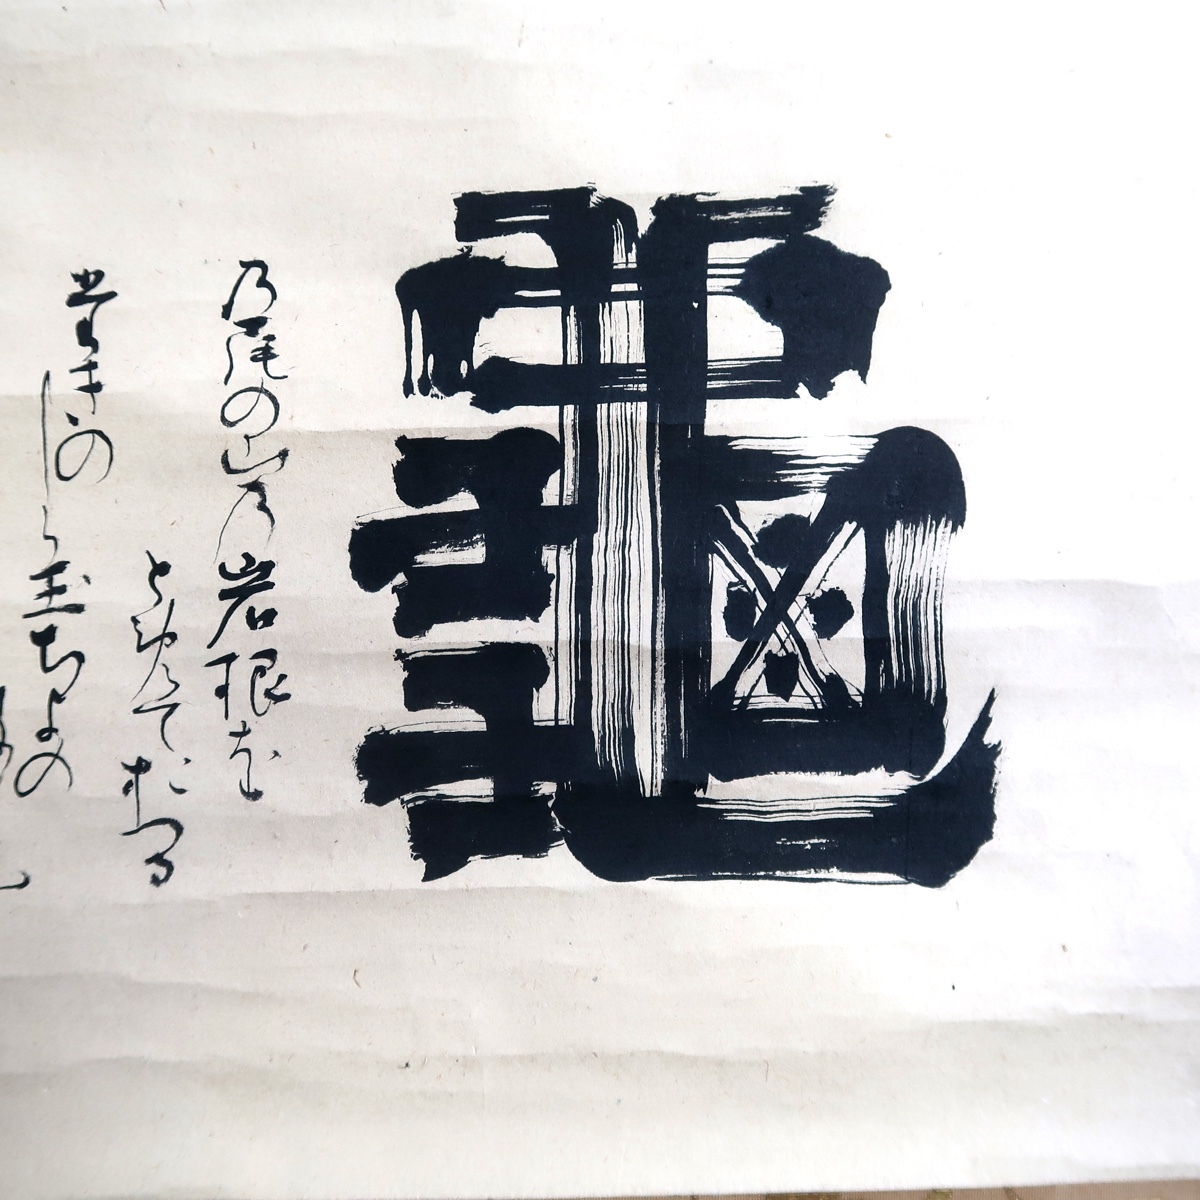 龜
乃尾の山乃岩根を
とめておつる
堂きのしら玉ちよの